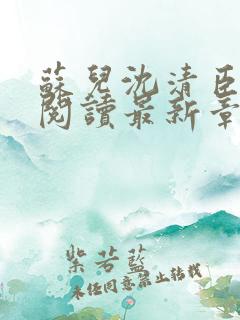 蘇兒沈清臣
閱讀最新章
紫若藍
未經同意禁止轉載